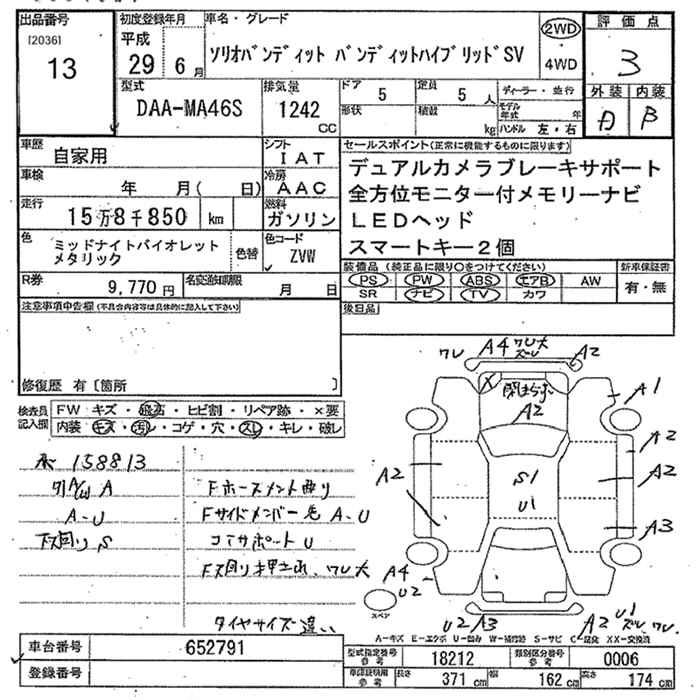 出品番号
[2036]
13
初度登録年月
平成
29 6 月
車名・グレード
ソリオバンディット バンディットハイブリッドSV
2WD
4WD
評価点
3
外装 内装
B
型式
DAA-MA46S
排気量
1242
CC
ドア
5
形状
定員
5 人
積載
kg
ディーラー・並行
モデル年式 年
ハンドル 左・右
車歴
自家用
シフト
IAT
車検
年 月( 日)
冷房
AAC
走行
15万8千850 km
燃料
ガソリン
色
ミッドナイトバイオレット
メタリック
色替
色コード
ZVW
R券
9,770 円
名変通知期限
月 日
セールスポイント(正常に機能するものに限ります)
デュアルカメラブレーキサポート
全方位モニター付メモリーナビ
LEDヘッド
スマートキー2個
装備品(純正品に限り○をつけてください)
新車保証書
PS PW ABS エアB AW
SR ナビ TV カワ
有・無
後日品
注意事項申告欄(不具合内容等は具体的に記入して下さい)
修復歴 有〔箇所 〕
検査員記入欄
FW キズ・飛石・ヒビ割・リペア跡・×要
内装 キズ・汚レ・コゲ・穴・スレ・キレ・破レ
158813
A
A-U
下回り S
Fホースメント曲り
Fサイドメンバー先 A-U
コアサポート U
F下回り押され、ワレ大
タイヤサイズ違い
ワレ
A4
ワレ大
ズレ
A2
X
A2
A1
A2
A2
A2
S1
U1
A3
A4
U2
スペア
U2
A2
U1
ズレ
ワレ
A-キズ E-エクボ U-凹み W-補修跡 S-サビ C-腐蝕 XX-交換済
車台番号
652791
登録番号
型式指定番号
参考
18212
類別区分番号
参考
0006
車両証明用
参考
長さ
371 cm
幅
162 cm
高さ
174 cm